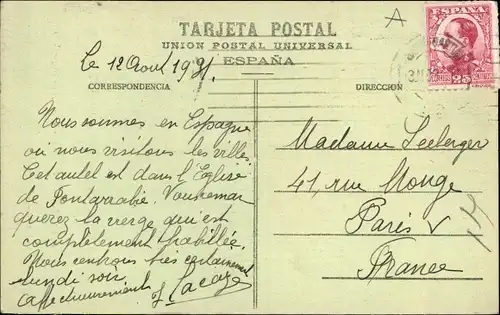 A
TARJETA POSTAL
UNION POSTAL UNIVERSAL
ESPAÑA
ESPAÑA
25
CORRESPONDENCIA
DIRECCION
Le 12 Aout 1931.
Nous sommes en Espagne
où nous visitons les villes
Cet autel est dans l'Eglise
de Fontarabie. Vous remar
querez la vierge qui est
complètement habillée.
Nous rentrons très certainement
lundi soir
affectueusement
J Lacaze
Madame Leeberger
41, rue Monge
Paris V
France